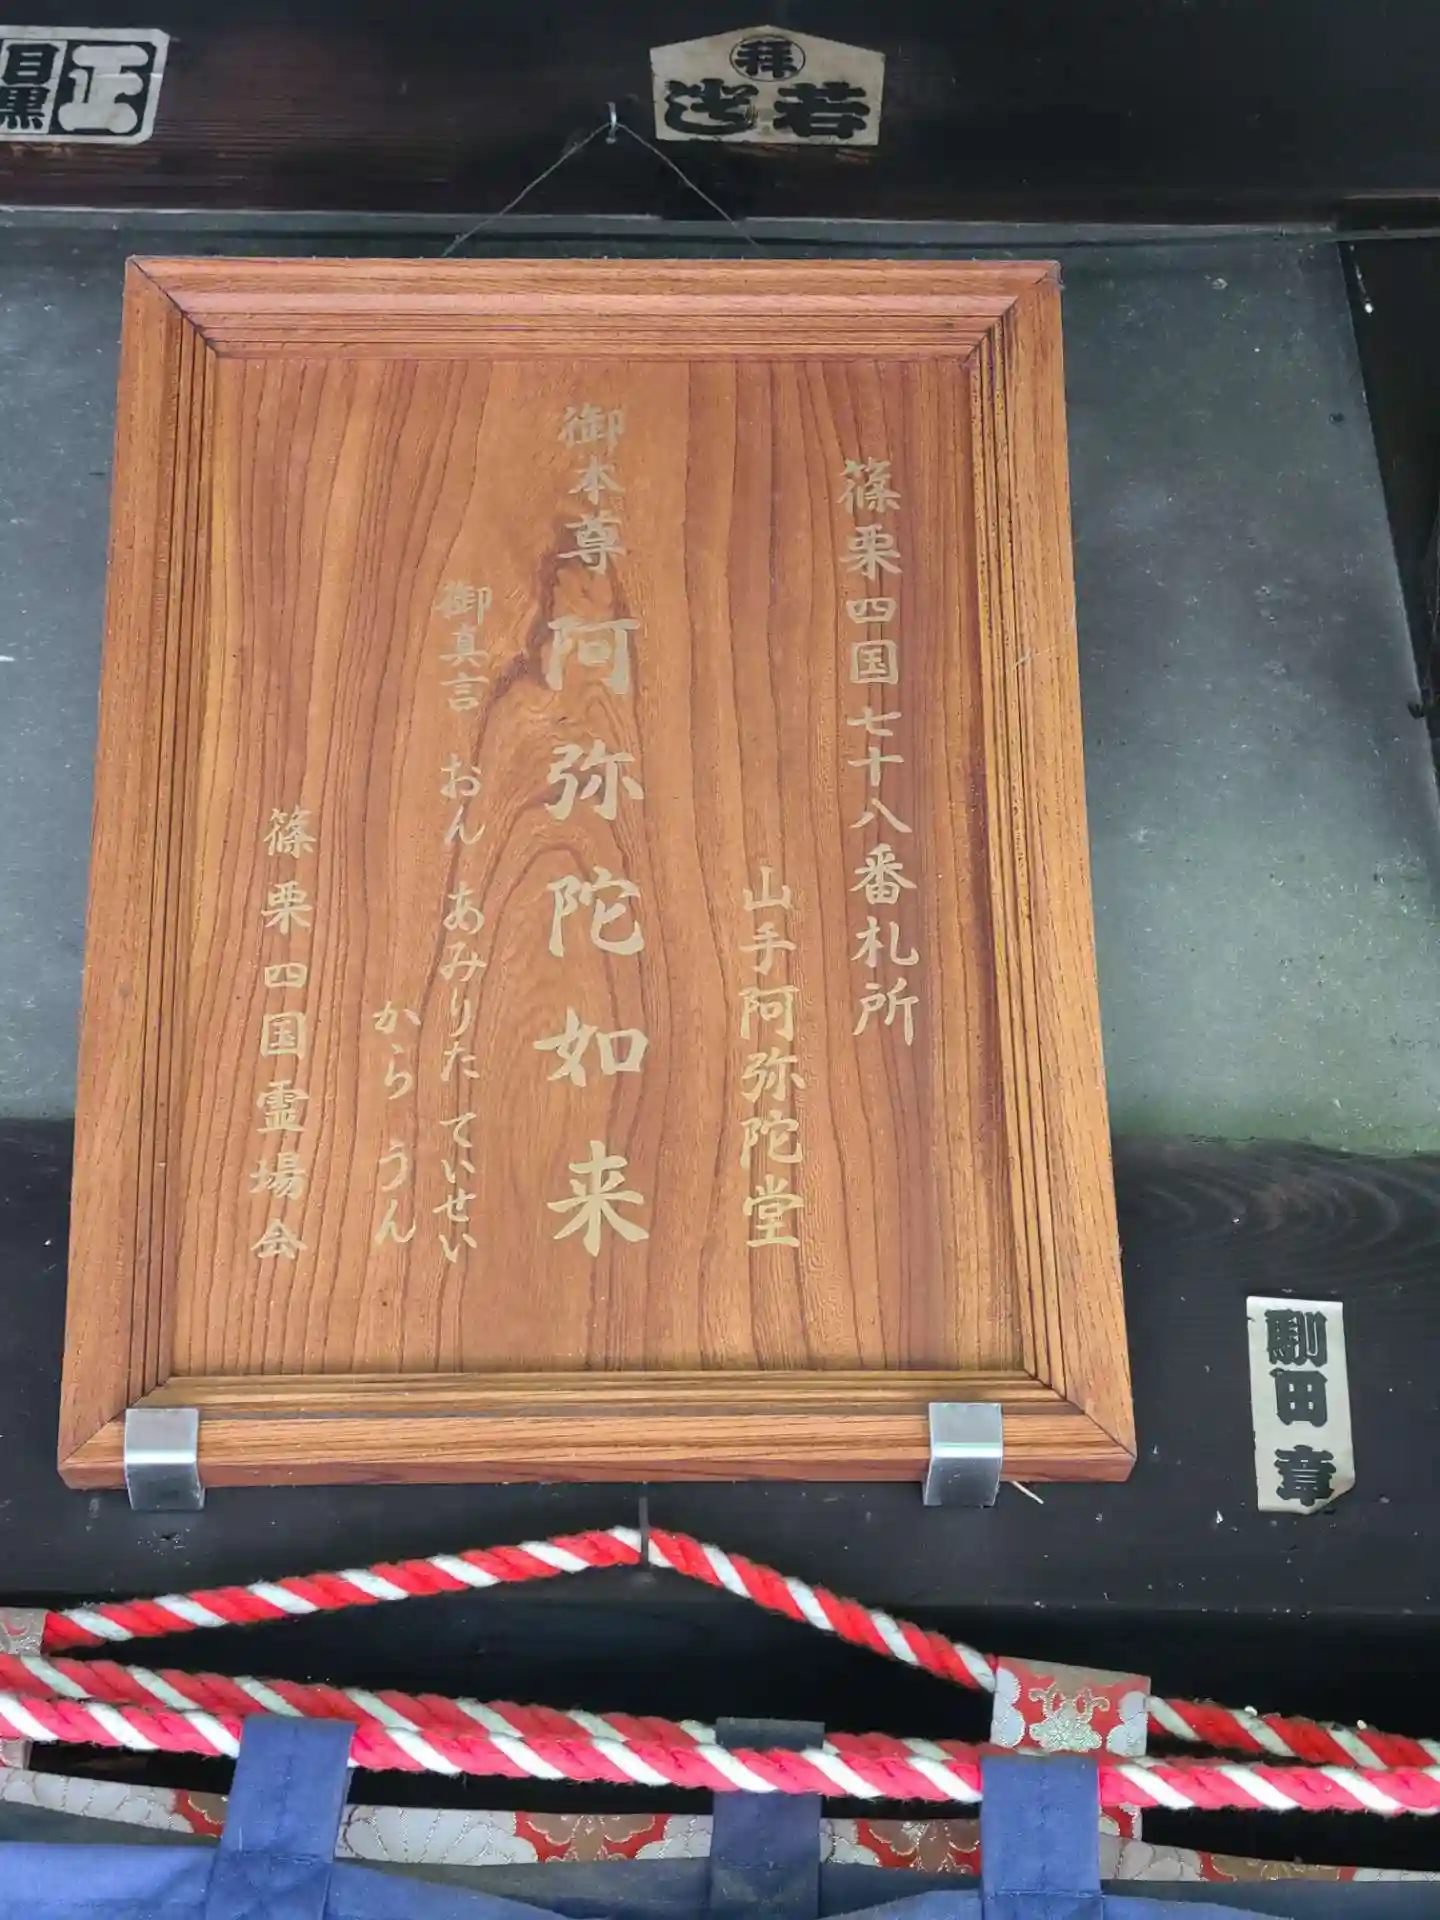 目黒
正
拝
若
篠栗四国七十八番札所
山手阿弥陀堂
御本尊 阿弥陀如来
御真言 おん あみりた ていせい
から うん
篠栗四国霊場会
馴田章